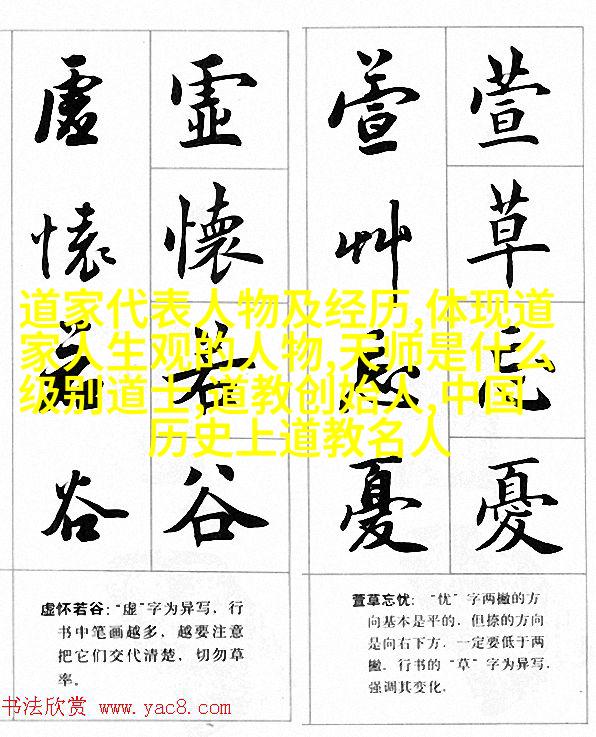 虛 靈
懷 懷
若 若
谷 谷
萱 萱
艸 草
忘 忘
憂 憂
道家代表人物及经历,体现道
家人生观的人物,天师是什么
级别道士,道教创始人,中国
历史上道教名人
虚怀若谷:“虚”字为异写,行
书中笔画越多,越要注意
把它们交代清楚,切勿草
率。
萱草忘忧:“忧”字两撇的方
向基本是平的,但捺的方向
是向右下方,一定要低于两
撇。行书的“草”字为异写,
强调其变化。
书法欣赏 www.yac8.com